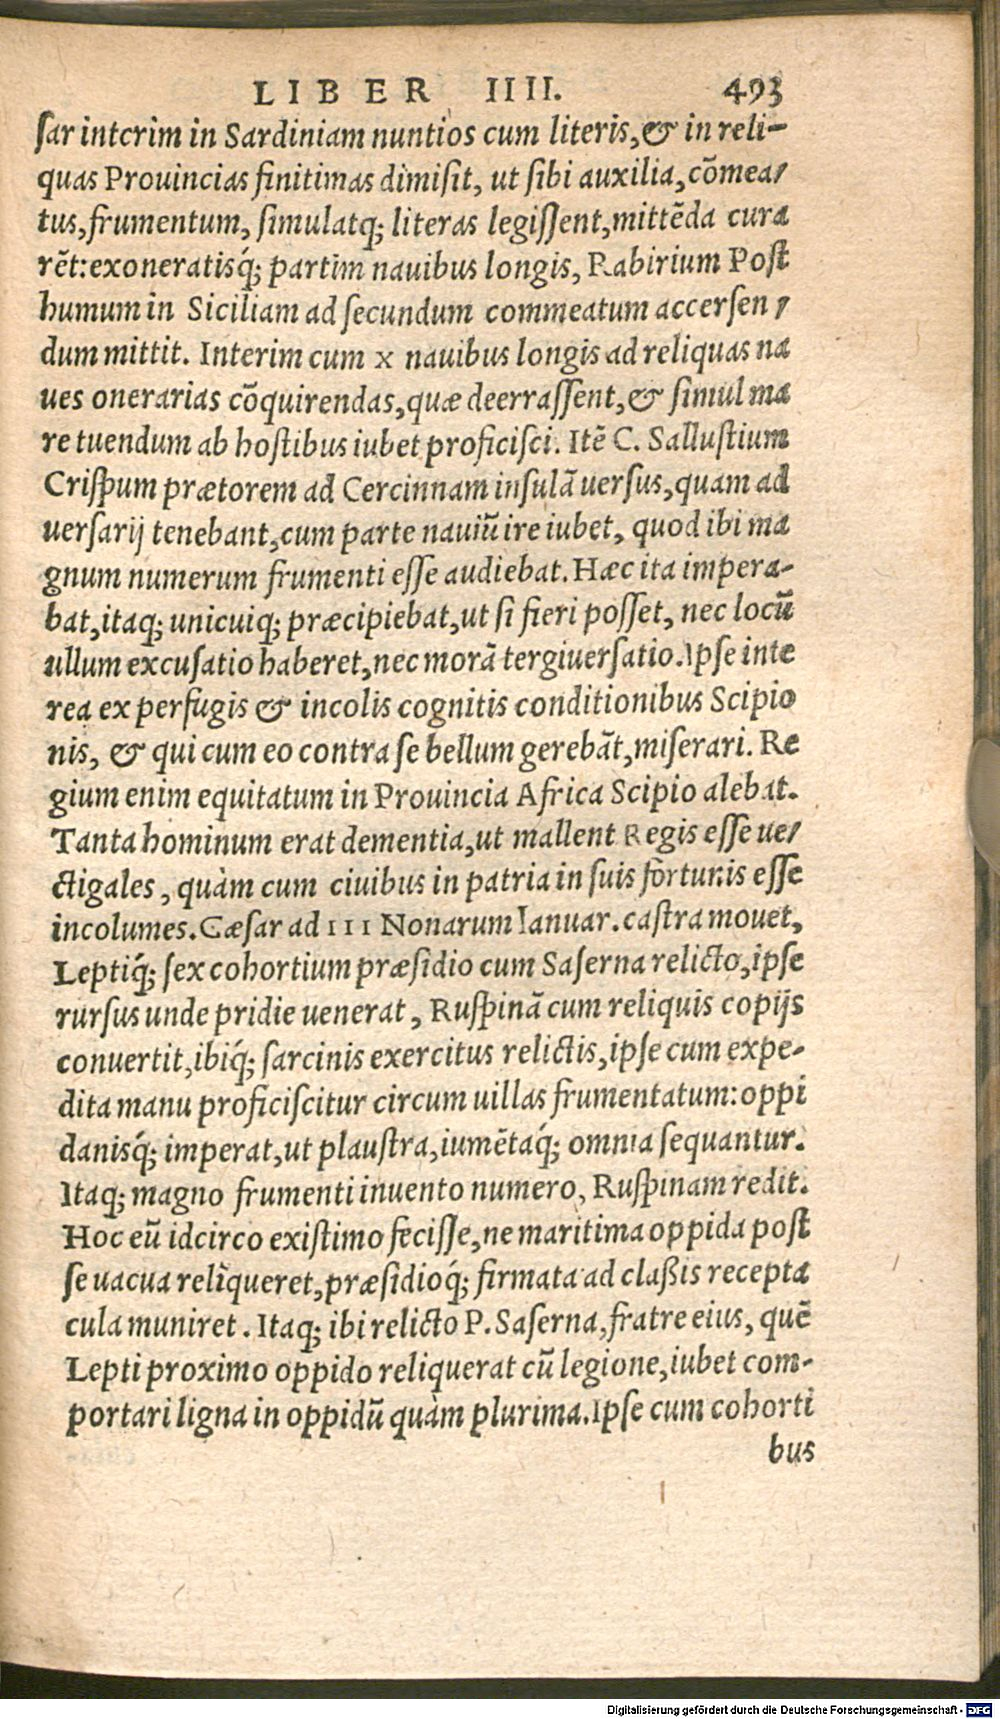 LIBER IIII. 493
ſar interim in Sardiniam nuntios cum literis,& in reli-
quas Prouincias finitimas dimiſit, ut ſibi auxilia,cõmea/
tus,frumentum, ſimulatq; literas legiſſent,mittẽda cura
rẽt:exoneratisq́; partim nauibus longis, Rabirium Poſt
humum in Siciliam ad ſecundum commeatum accerſen/
dum mittit. Interim cum x nauibus longis ad reliquas na
ues onerarias cõquirendas,quæ deerraſſent,& ſimul ma
re tuendum ab hoſtibus iubet proficiſci. Itẽ C. Salluſtium
Criſpum prætorem ad Cercinnam inſulã uerſus,quam ad
uerſarij tenebant,cum parte nauiũ ire iubet, quod ibi ma
gnum numerum frumenti eſſe audiebat. Hæc ita impera-
bat,itaq; unicuiq; præcipiebat,ut ſi fieri poſſet, nec locũ
ullum excuſatio haberet,nec morã tergiuerſatio. Ipſe inte
rea ex perfugis & incolis cognitis conditionibus Scipio
nis, & qui cum eo contra ſe bellum gerebãt,miſerari. Re
gium enim equitatum in Prouincia Africa Scipio alebat.
Tanta hominum erat dementia,ut mallent Regis eſſe ue/
ctigales, quàm cum ciuibus in patria in ſuis fortunis eſſe
incolumes. Cæſar ad III Nonarum Ianuar. caſtra mouet,
Leptiq́; ſex cohortium præſidio cum Saſerna relicto,ipſe
rurſus unde pridie uenerat, Ruſpinã cum reliquis copijs
conuertit,ibiq́; ſarcinis exercitus relictis,ipſe cum expe-
dita manu proficiſcitur circum uillas frumentatum: oppi
danisq́; imperat,ut plauſtra,iumẽtaq́; omnia ſequantur.
Itaq; magno frumenti inuento numero, Ruſpinam redit.
Hoc eũ idcirco exiſtimo feciſſe,ne maritima oppida poſt
ſe uacua relìqueret,præſidioq́; firmata ad claßis recepta
cula muniret. Itaq; ibi relicto P. Saſerna,fratre eius, quẽ
Lepti proximo oppido reliquerat cũ legione,iubet com-
portari ligna in oppidũ quàm plurima. Ipſe cum cohorti
bus
Digitalisierung gefördert durch die Deutsche Forschungsgemeinschaft - DFG